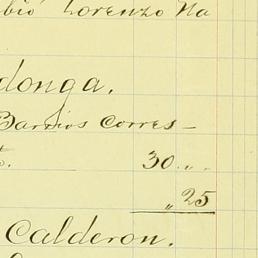 bió Lorenzo Na
donga.
Barrios Corres-
t. 30 " "
" 25
Calderon.